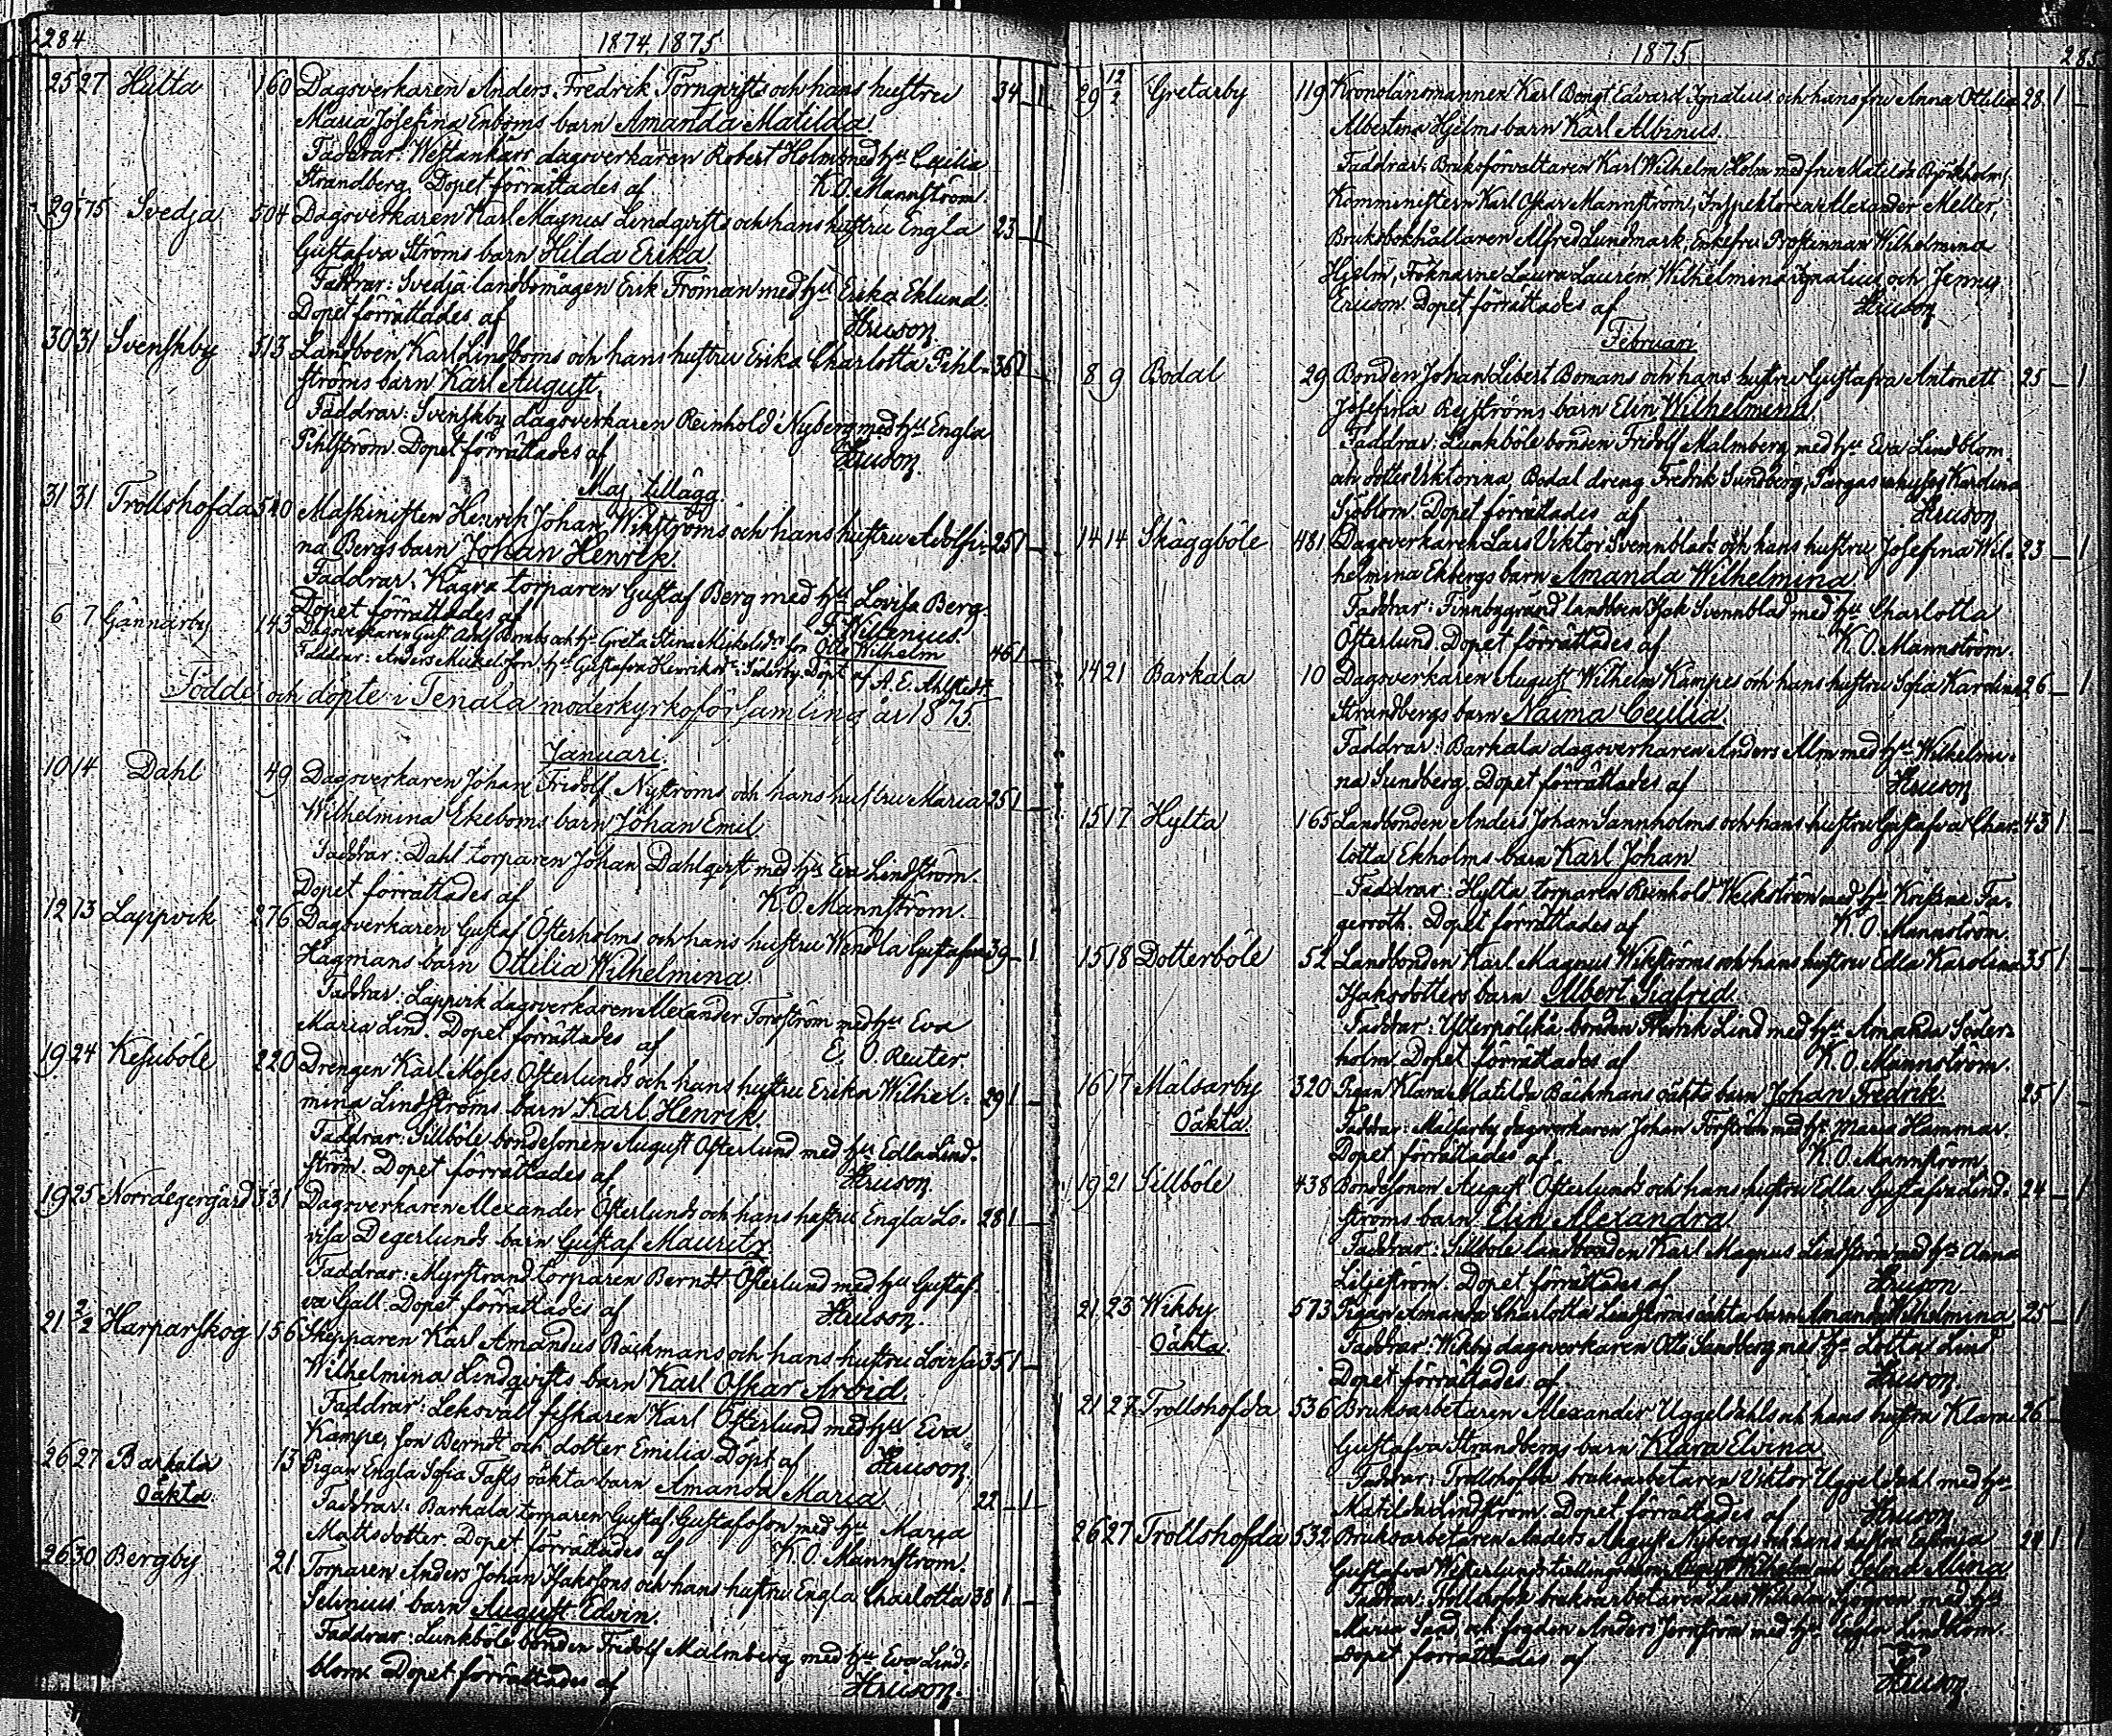 284
1874, 1875
25 27 Hilta 160 Dagsverkaren Anders Fredrik Törnqvists och hans hustru 34 1
Maria Josefina Enboms barn Amanda Matilda.
Faddrar: Westankärr dagsverkaren Robert Holm med hu Cecilia
Strandberg. Dopet förrättades af K.O. Mannström.
29 1/1 75 Svedja 504 Dagsverkaren Karl Magnus Lindqvists och hans hustru Engla 23 1
Gustafva Ströms barn Hilda Erika
Faddrar: Svedja landbomågen Erik Fröman med hu Erika Eklund.
Dopet förrättades af
30 31 Svenskby 513 Landboen Karl Lindboms och hans hustru Erika Charlotta Pihl- 36 1
ströms barn Karl August.
Faddrar: Svenskby dagsverkaren Reinhold Nyberg med hu Engla
Pihlström. Dopet förrättades af
Maj, tillägg.
31 31 Trollshofda 540 Maskinisten Henrik Johan Wikströms och hans hustru Adolfi- 25 1
na Bergs barn Johan Henrik.
Faddrar: Kagra torparen Gustaf Berg med hu Lovisa Berg.
Dopet förrättades af F. Willenius
6 7 Gännarby 143 Dagsverkaren Gust. och hu Greta Stina son Otto Wilhelm 46 1
Faddrar: Anders Mickelsson, hu Gustafva Henriksdr Söderby. Döpt af A.E. Ahlstedt.
Födde och döpte i Tenala moderkyrkoförsamling år 1875.
Januari.
10 14 Dahl 49 Dagsverkaren Johan Fridolf Nyströms och hans hustru Maria 25 1
Wilhelmina Ekeboms barn Johan Emil
Faddrar: Dahl torparen Johan Dahlqvist med hu Eva Lindström.
Dopet förrättades af K.O. Mannström.
12 13 Lappvik 276 Dagsverkaren Gustaf Österholms och hans hustru Wendla Gustafva 39 1
Hagmans barn Ottilia Wilhelmina.
Faddrar: Lappvik dagsverkaren Alexander Forsström med hu Eva
Maria Lind. Dopet förrättades af E. O. Reuter.
19 24 Kesuböle 220 Drengen Karl Moses Österlunds och hans hustru Erika Wilhel- 29 1
mina Lindströms barn Karl Henrik.
Faddrar: Sillböle bondesonen August Österlund med hu Edla Lind-
ström. Dopet förrättades af
19 25 Norrdegergård 331 Dagsverkaren Alexander Österlunds och hans hustru Engla Lo- 28 1
visa Degerlunds barn Gustaf Mauritz.
Faddrar: Myrstrand torparen Berndt Österlund med hu Gustaf-
va Gall. Dopet förrättades af
21 2/2 Harparskog 156 Skepparen Karl Amandus Bäckmans och hans hustru Lovisa 35 1
Wilhelmina Lindqvists barn Karl Oskar Arvid.
Faddrar: Leksvall fiskaren Karl Österlund med hu Eva
Kampe, son Berndt och dotter Emilia. Döpt af
26 27 Barkala 13 Pigan Engla Sofia Tasts oäkta barn Amanda Maria. 22 1
Oäkta.
Faddrar: Barkala torparen Gustaf Gustafsson med hu Maria
Mattsdotter. Dopet förrättades af K.O. Mannström.
26 30 Bergby 21 Torparen Anders Johan Isakssons och hans hustru Engla Charlotta 38 1
Selinus barn August Edvin.
Faddrar: Lunkböle bonden Fridolf Malmberg med hu Eva Lind-
blom. Dopet förrättades af
1875
285
29 12/2 Gretarby 119 Kronolänsmannen Karl Bengt Edvard Ignatius och hans fru Anna Ottilia 28 1
Albertina Hjelms barn Karl Albinus.
Faddrar: Bruksförvaltaren Karl Wilhelm Holm med fru Matilda Björkholm,
Komministern Karl Oskar Mannström, Inspektoren Alexander Meller,
Bruksbokhållaren Alfred Lundmark, Enkefru Prostinnan Wilhelmina
Hjelm, Fröknarne Laura Laurén, Wilhelmina Ignatius och Jenny
Ericson. Dopet förrättades af
Februari
8 9 Bodal 29 Bonden Johan Libert Bomans och hans hustru Gustafva Antonett 25 1
Josefina Reiströms barn Elin Wilhelmina.
Faddrar: Lunkböle bonden Fridolf Malmberg med hu Eva Lindblom
och dotter Viktorina, Bodal dreng Fredrik Sundberg, Pargas Karolina
Sjöblom. Dopet förrättades af
14 14 Skäggböle 481 Dagsverkaren Lars Viktor Svennblads och hans hustru Josefina Wil- 23 1
helmina Ekbergs barn Amanda Wilhelmina.
Faddrar: Finnbygränd landboen Isak Svennblad med hu Charlotta
Österlund. Dopet förrättades af K.O. Mannström.
14 21 Barkala 10 Dagsverkaren August Wilhelm Kampes och hans hustru Sofia Karolina 26 1
Strandbergs barn Naima Cecilia.
Faddrar: Barkala dagsverkaren Anders Alm med hu Wilhelmi-
na Sundberg. Dopet förrättades af
15 17 Hylta 165 Landbonden Anders Johan Sannholms och hans hustru Gustafva Char- 43 1
lotta Ekholms barn Karl Johan
Faddrar: Hylta torparen Reinhold Weckström med hu Kristina Fa-
gerroth. Dopet förrättades af K.O. Mannström.
15 18 Dotterböle 52 Landbonden Karl Magnus Wikströms och hans hustru Edla Karolina 35 1
Isaksdotters barn Albert Sigfrid.
Faddrar: Ytterpölekä bonden Fredrik Lind med hu Amanda Söder-
holm. Dopet förrättades af K.O. Mannström.
16 17 Målsarby 320 Pigan Klara Matilda Bäckmans oäkta barn Johan Fredrik. 25 1
Oäkta.
Faddrar: Målsarby dagsverkaren Johan Forsström med hu Maria Hammar.
Dopet förrättades af K.O. Mannström.
19 21 Sillböle 438 Bondesonen August Österlunds och hans hustru Edla Gustafva Lind- 24 1
ströms barn Elin Alexandra.
Faddrar: Sillböle landbonden Karl Magnus Lindström med hu Anna
Liljeström. Dopet förrättades af
21 23 Wikby 573 Pigan Amanda Charlotta Lindströms oäkta barn Amanda Wilhelmina 25 1
Oäkta.
Faddrar: Wikby dagsverkaren Otto Sandberg med hu Lotta Lind
Dopet förrättades af
21 27 Trollshofda 536 Bruksarbetaren Alexander Uggeldahls och hans hustru Klara 26
Gustafva Strandbergs barn Klara Elvina
Faddrar: Trollshofda bruksarbetaren Viktor Uggeldahl med hu
Matilda Lindström. Dopet förrättades af
26 27 Trollshofda 532 Bruksarbetaren Anders August Nybergs och hans hustru 1 1
Gustafva Westerlunds tvillingar August Wilhelm och Selma Alina
Faddrar: Trollshofda bruksarbetaren Lars Wilhelm Sjögren med hu
Maria Sand och fogden Anders Jernström med hu Engla Lindblom.
Dopet förrättades af